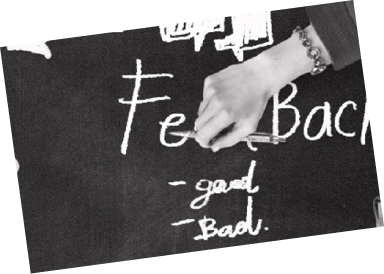 Fe Back
- good
- Bad.